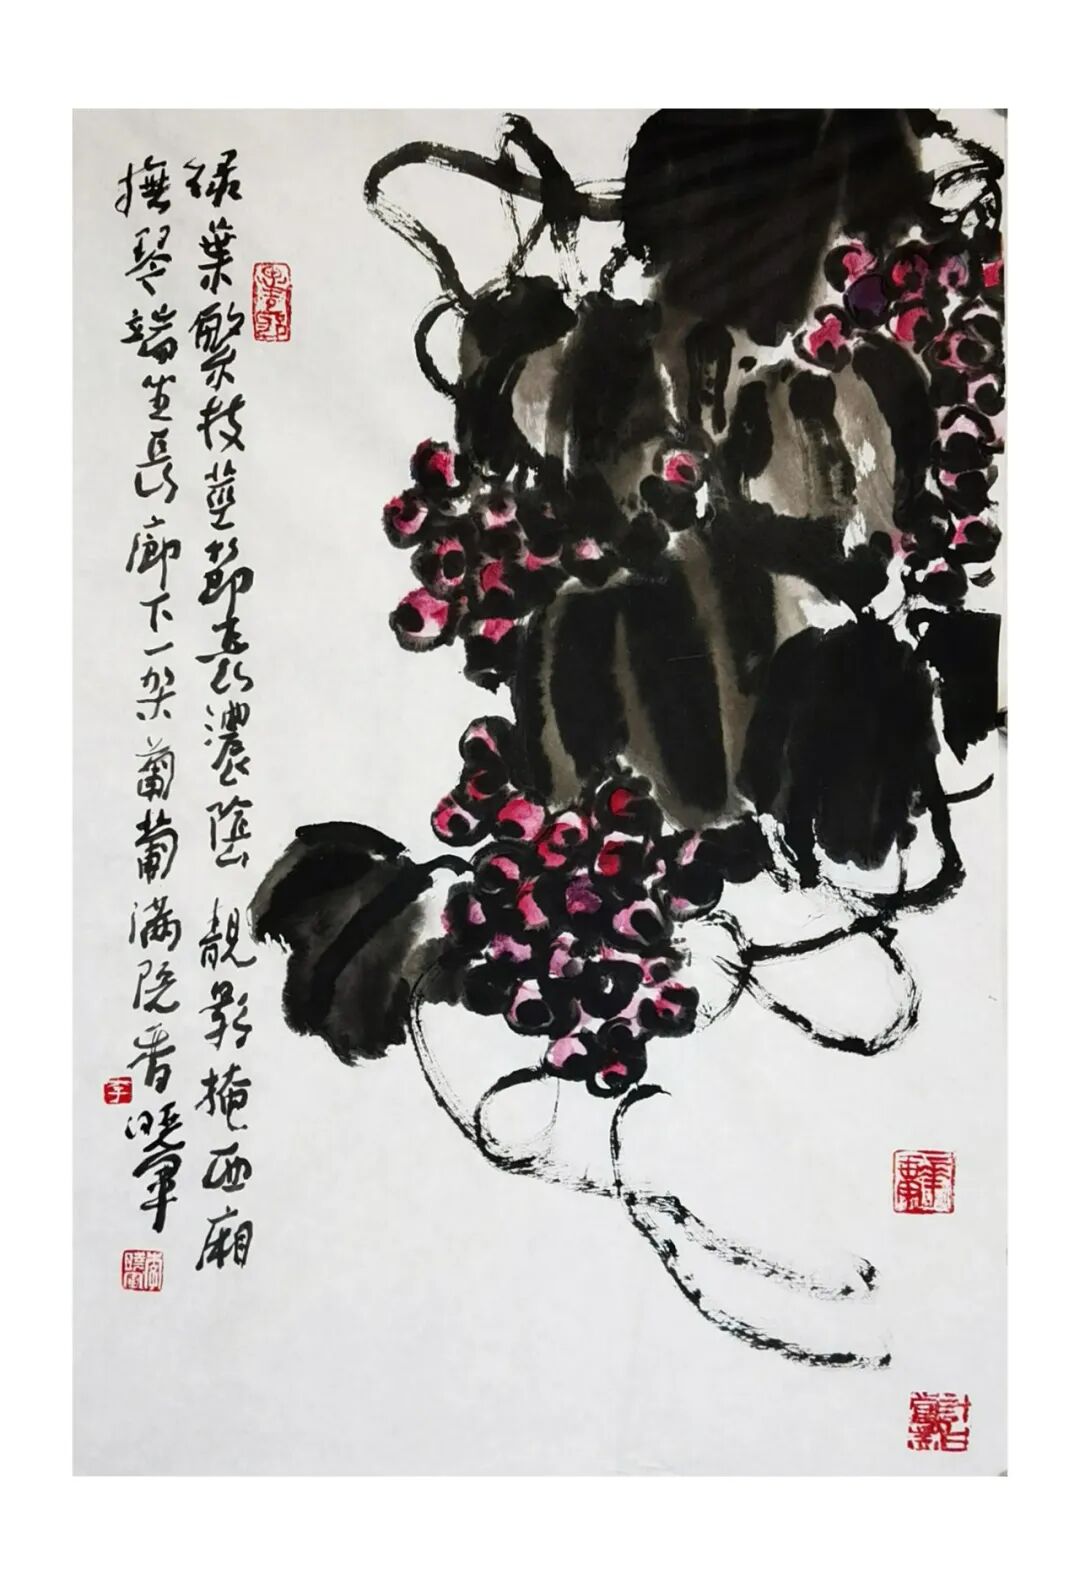 綠葉繁枝莖節長濃陰靚影掩西廂
撫琴端坐長廊下一架葡萄滿院香 曉軍
李
計白當黑